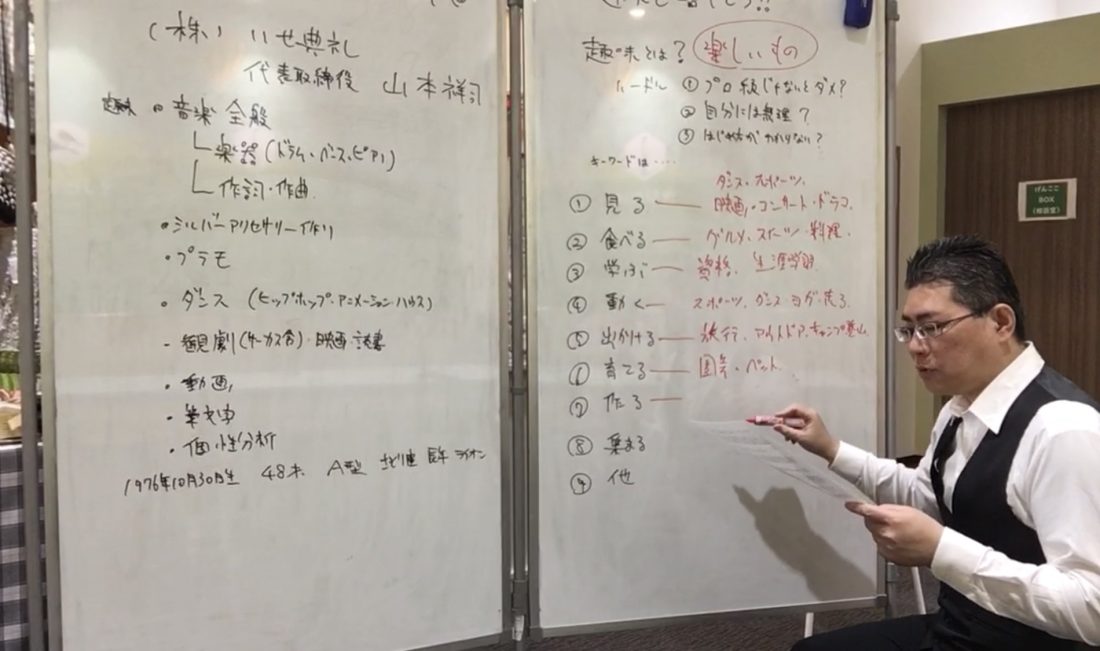 (株) いせ典礼
代表取締役 山本祥司
趣味 音楽全般
楽器(ドラム・ベース・ピアノ)
作詞・作曲
・シルバーアクセサリー作り
・プラモ
・ダンス (ヒップホップ・アニメーション・ハウス)
・観劇(サーカス含)・映画・読書
・動画
・筆文字
・個性分析
1976年10月30日生 48才 A型 さそり座 辰年 ライオン
趣味とは? 楽しいもの
ハードル ①プロ級じゃないとダメ?
②自分には無理?
③はじめ方がわからない?
キーワードは・・・・
ダンス、スポーツ、
① 見る 映画・コンサート・ドラマ、
② 食べる グルメ、スイーツ・料理、
③ 学ぶ 資格、生涯学習
④ 動く スポーツ、ダンス・ヨガ・走る、
⑤ 出かける 旅行、アウトドア、キャンプ登山
⑥ 育てる 園芸・ペット
⑦ 作る
⑧ 集まる
⑨ 他
げんここ
BOX
(相談室)